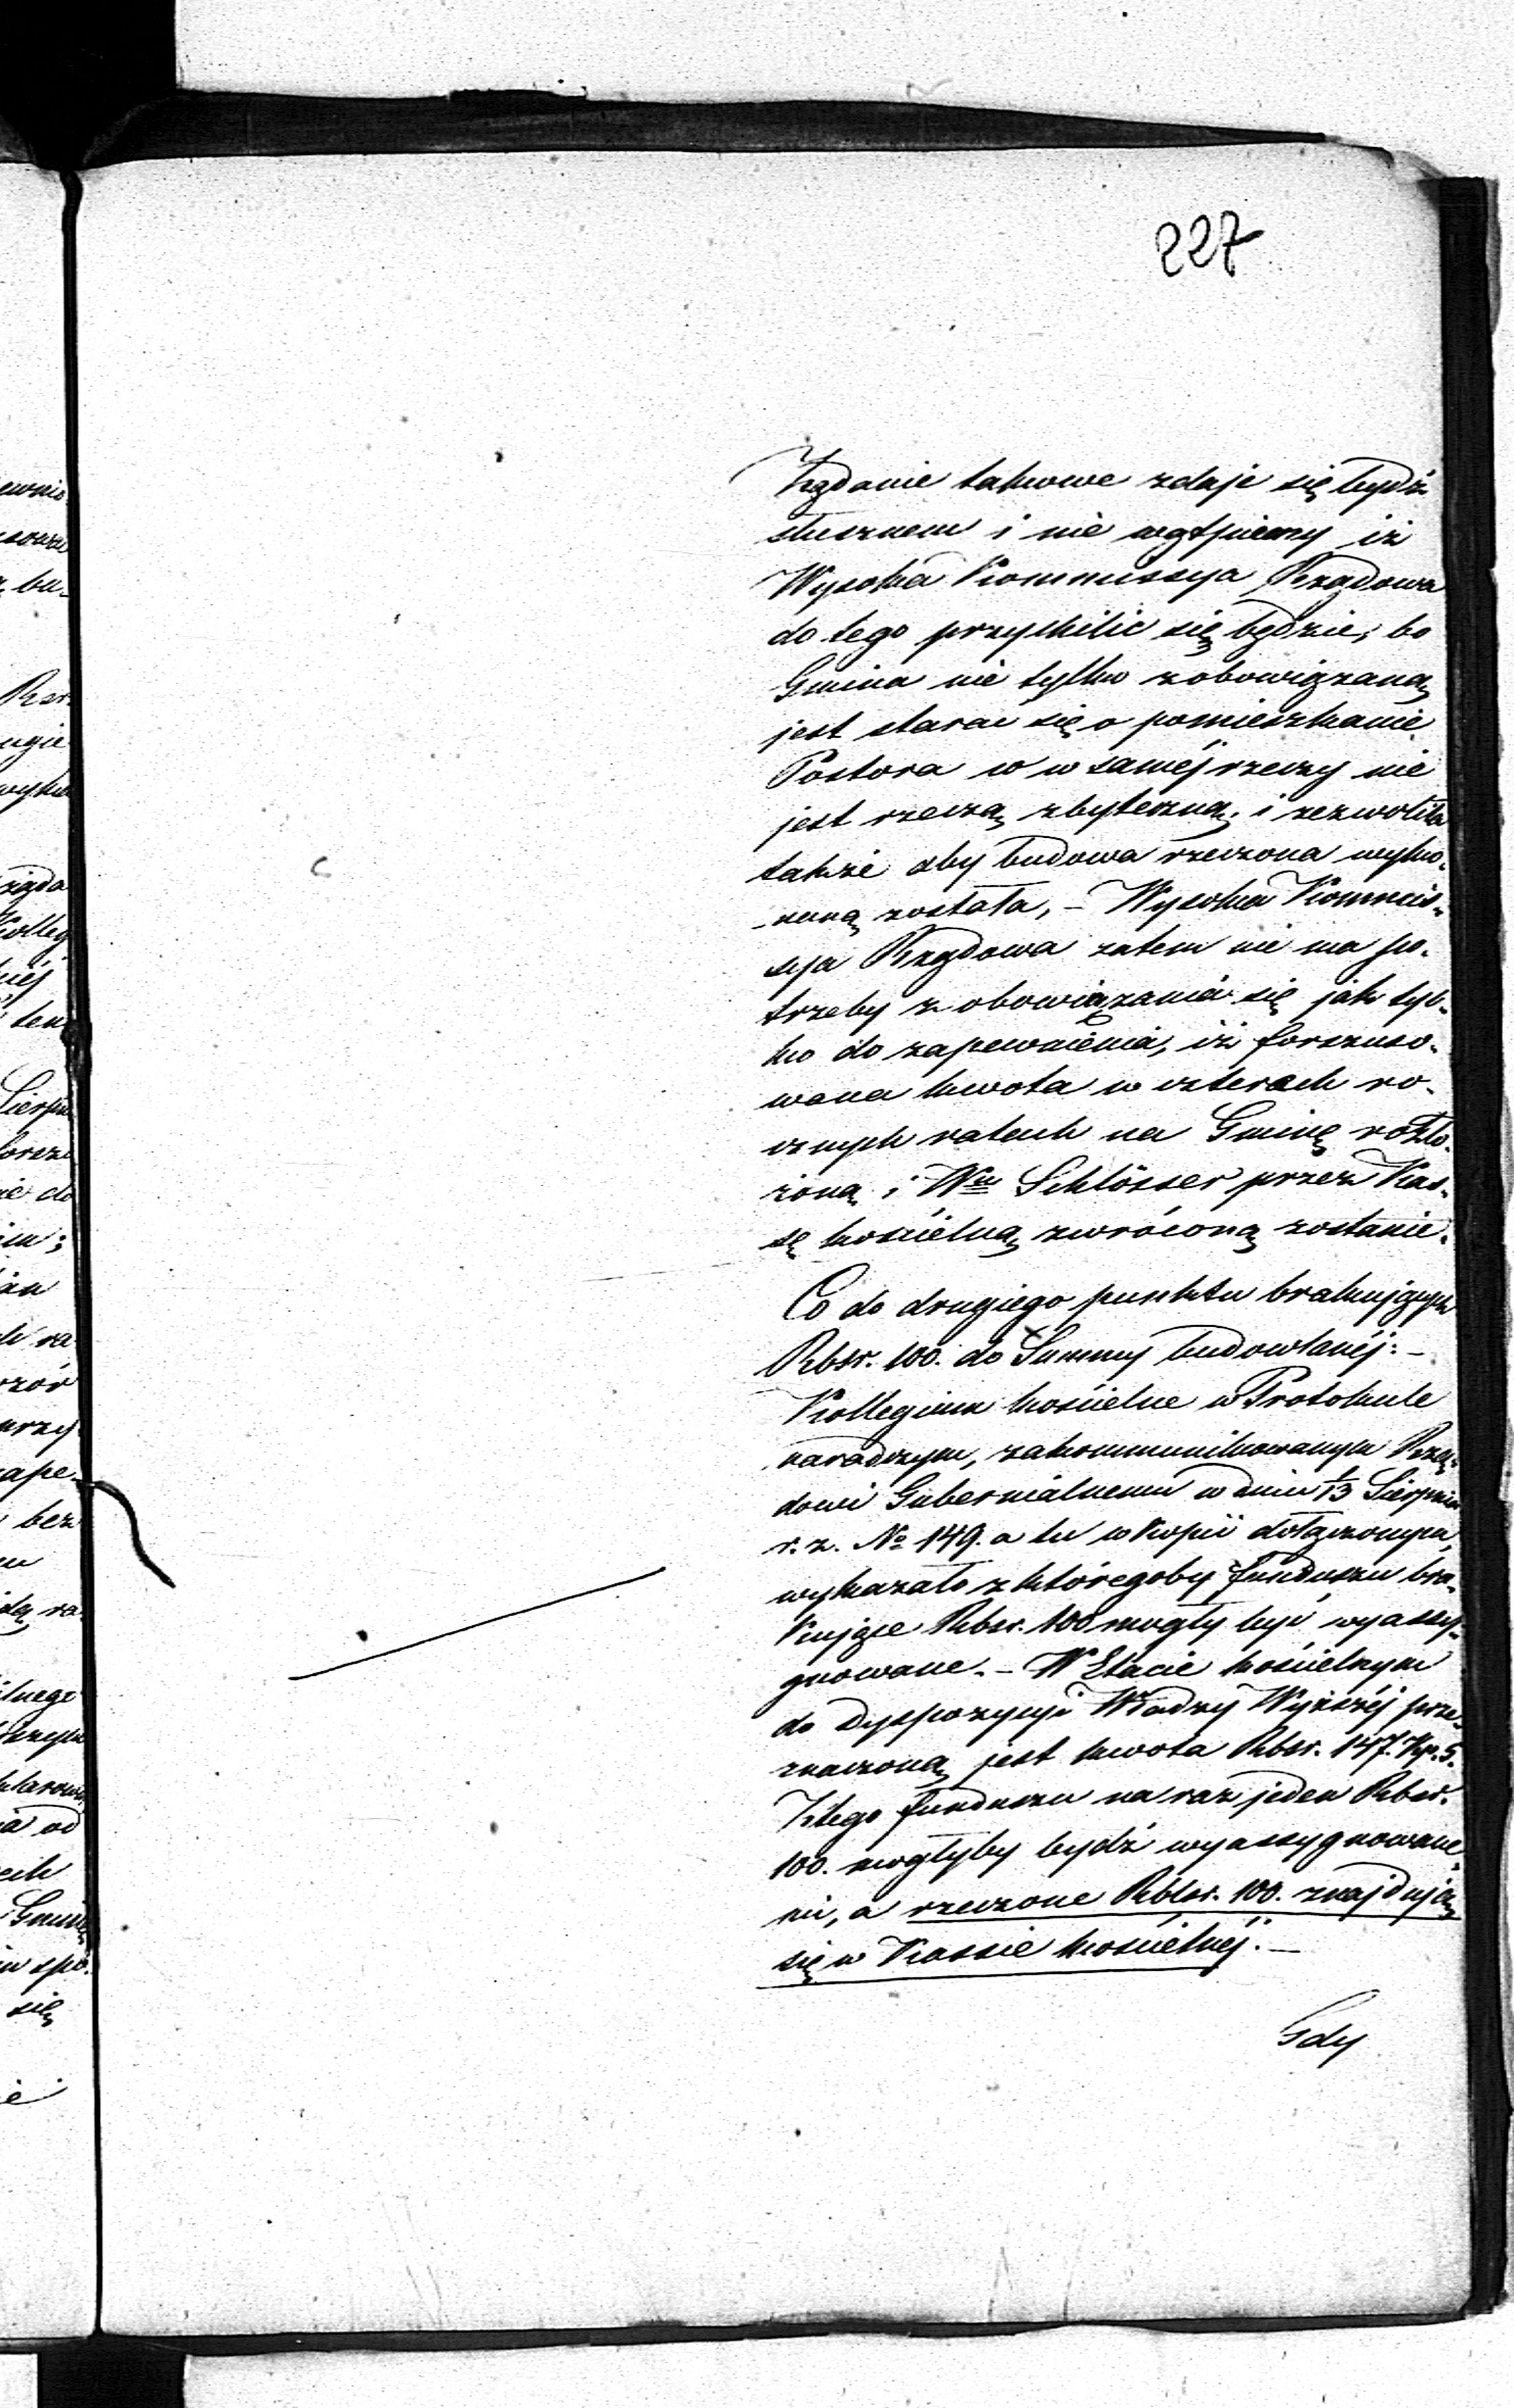 227
Żądanie takowe zdaje się bydź
słusznem i nie wątpiemy iż
Wysoka Kommissya Rządowa
do tego przychilić się będzie, bo
Gmina nie tylko zobowiązaną
jest starać się o pomieszkanie
Pastora w w saméj rzeczy nie
jest rzeczą zbyteczną, i zezwoliła
także aby budowa rzeczona wyko-
naną została, – Wysoka Kommis-
sya Rządowa zatem nie ma po-
trzeby zobowiązania się jak tyl-
ko do zapewnienia, iż forszuso-
wana kwota w czterech ro-
cznych ratach na Gminę rozło-
żoną i Wmu Schlösser przez Kas-
sę kościelną zwróconą zostanie.
Co do drugiego punktu brakujących
Rbsr. 100. do Summy budowlanéj: –
Kollegium kościelne w Protokule
naradczym, zakommunikowanym Rzą-
dowi Gubernialnemu w dniu 1/13 Sierpnia
r. z. No 149. a tu w kopii dołączonym,
wykazało z któregoby funduszu bra-
kujące Rbsr. 100 mogły być wyassy-
gnowane. – W Etacie kościelnym
do dyspozycyi Władzy Wyższéj prze-
znaczoną jest kwota Rbsr. 147. Kp. 5.
Z tego funduszu na raz jeden Rbsr.
100. mogłyby bydź wyassygnowane-
mi, a rzeczone Rblsr. 100. znajdują
się w Kassie kościelnéj. –
Gdy